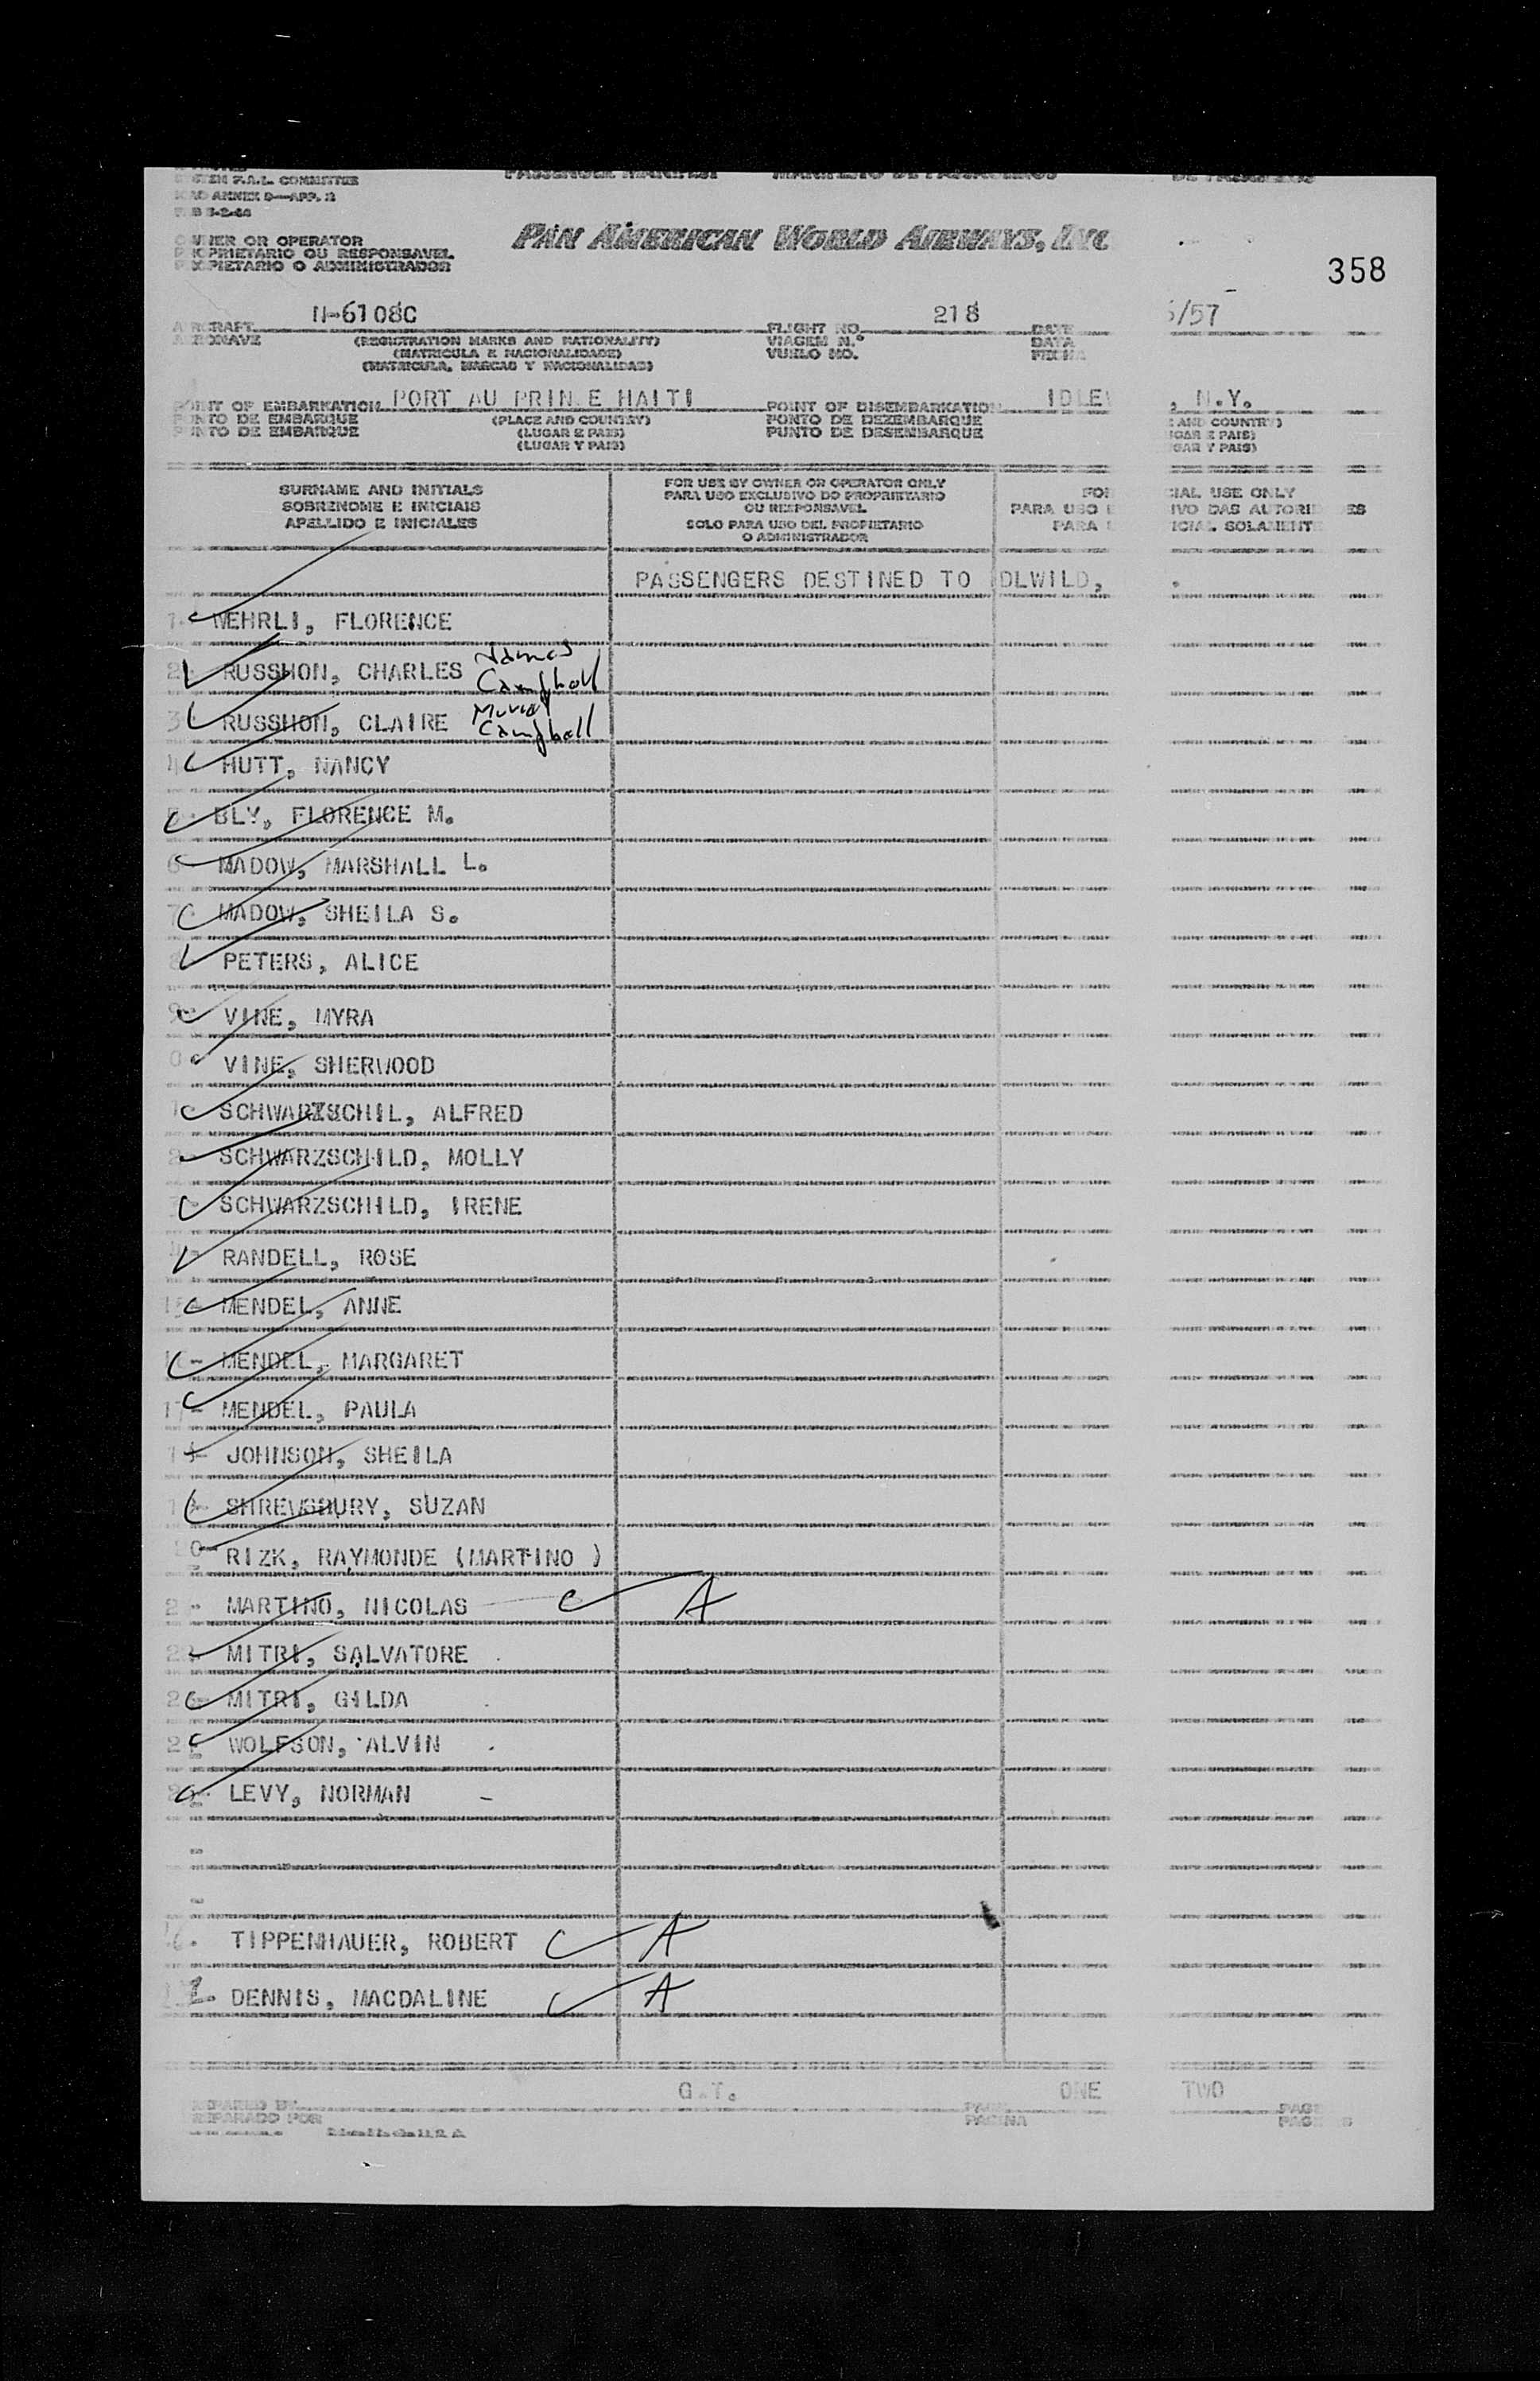 PASSENGER MANIFEST MANIFESTO DE PASSAGEIROS DE PASAJEROS
F.A.L. COMMITTEE
ANNEX 9—APP. 2
OWNER OR OPERATOR
PROPRIETARIO OU RESPONSAVEL
PROPIETARIO O ADMINISTRADOR
PAN AMERICAN WORLD AIRWAYS, INC
358
N-6108C 218 /57
AIRCRAFT FLIGHT NO. DATE
AERONAVE (REGISTRATION MARKS AND NATIONALITY) VIAGEM N.º DATA
(MATRICULA E NACIONALIDADE) VUELO NO. FECHA
(MATRICULA, MARCAS Y NACIONALIDAD)
POINT OF EMBARKATION PORT AU PRIN E HAITI POINT OF DISEMBARKATION IDLEW , N.Y.
PONTO DE EMBARQUE (PLACE AND COUNTRY) PONTO DE DEZEMBARQUE AND COUNTRY)
PUNTO DE EMBARQUE (LUGAR E PAIS) PUNTO DE DESEMBARQUE GAR E PAIS)
(LUGAR Y PAIS) GAR Y PAIS)
SURNAME AND INITIALS
SOBRENOME E INICIAIS
APELLIDO E INICIALES
FOR USE BY OWNER OR OPERATOR ONLY
PARA USO EXCLUSIVO DO PROPRIETARIO
OU RESPONSAVEL
SOLO PARA USO DEL PROPIETARIO
O ADMINISTRADOR
FOR CIAL USE ONLY
PARA USO E IVO DAS AUTORI ES
PARA ICIAL SOLAMENT
PASSENGERS DESTINED TO IDLWILD, .
WEHRLI, FLORENCE
2 RUSSHON, CHARLES James Campbell
3 RUSSHON, CLAIRE Muriel Campbell
4 HUTT, NANCY
5 BLY, FLORENCE M.
6 MADOW, MARSHALL L.
7 MADOW, SHEILA S.
8 PETERS, ALICE
9 VINE, MYRA
0 VINE, SHERWOOD
SCHWARZSCHIL, ALFRED
SCHWARZSCHILD, MOLLY
SCHWARZSCHILD, IRENE
RANDELL, ROSE
15 MENDEL, ANNE
MENDEL, MARGARET
17- MENDEL, PAULA
JOHNSON, SHEILA
SHREWSBURY, SUZAN
20- RIZK, RAYMONDE (MARTINO )
2 - MARTINO, NICOLAS A
22 MITRI, SALVATORE
2 MITRI, GILDA
2 WOLFSON, ALVIN
2 LEVY, NORMAN
TIPPENHAUER, ROBERT A
DENNIS, MACDALINE A
G.T. ONE TWO
PREPARED BY PAGE PAGE
PREPARADO POR PAGINA PAG S